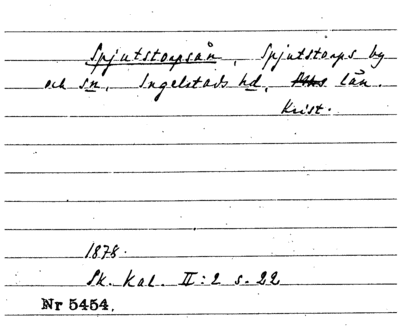 Spjutstorpsån, Spjutstorps by
och sn, Ingelstads hd, län.
Krist.
1878.
Sk. Kal. II:2 s. 22
Nr 5454.